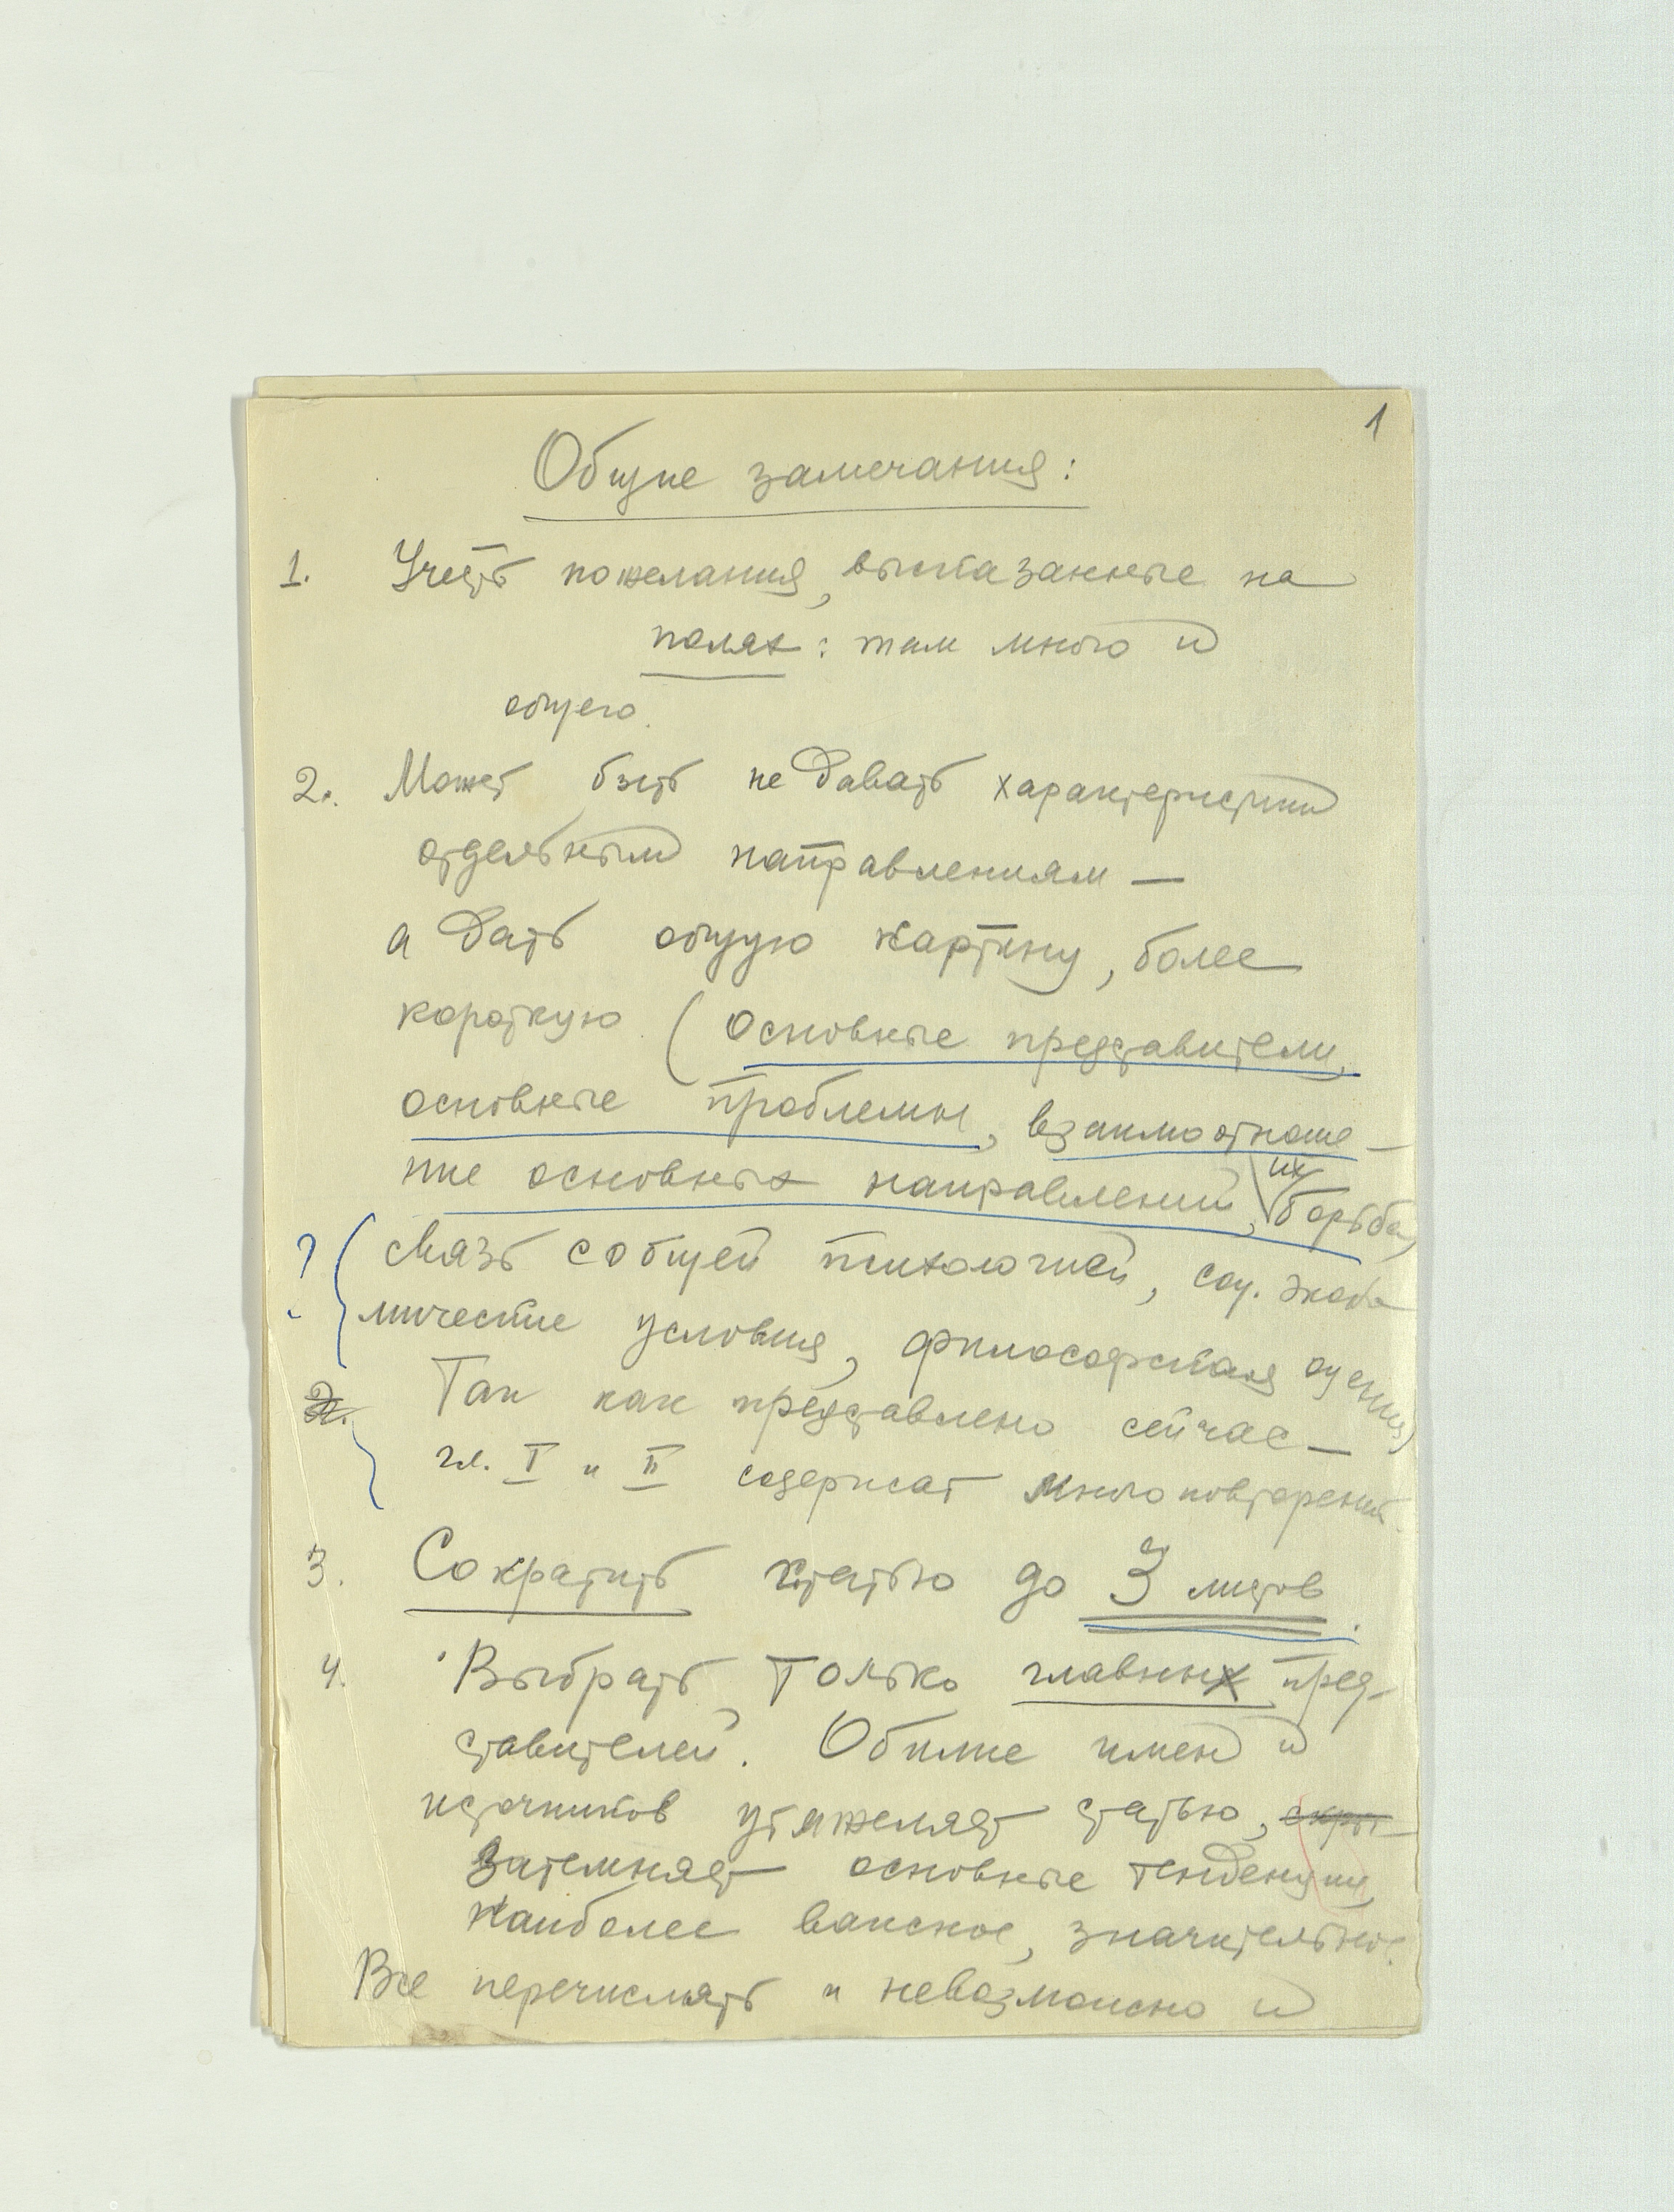 1
Общие замечания:
1. Учесть пожелания, высказанные на
полях: там много и
общего.
2. Может быть не давать характеристики
отдельным направлениям —
а дать общую картину, более
короткую (основные представители,
основные проблемы, взаимоотноше-
ние основных направлений, их борьба,
? связь с общей психологией, соц. эконо
мические условия, философская оценка)
2. Так как представлено сейчас —
гл. I и II содержат много повторений.
3. Сократить статью до 3 листов.
4. Выбрать только главных пред-
ставителей. Обилие имен и
источников утяжеляет статью, скры-
затемняет основные тенденции,
наиболее важное, значительное.
Все перечислять и невозможно и